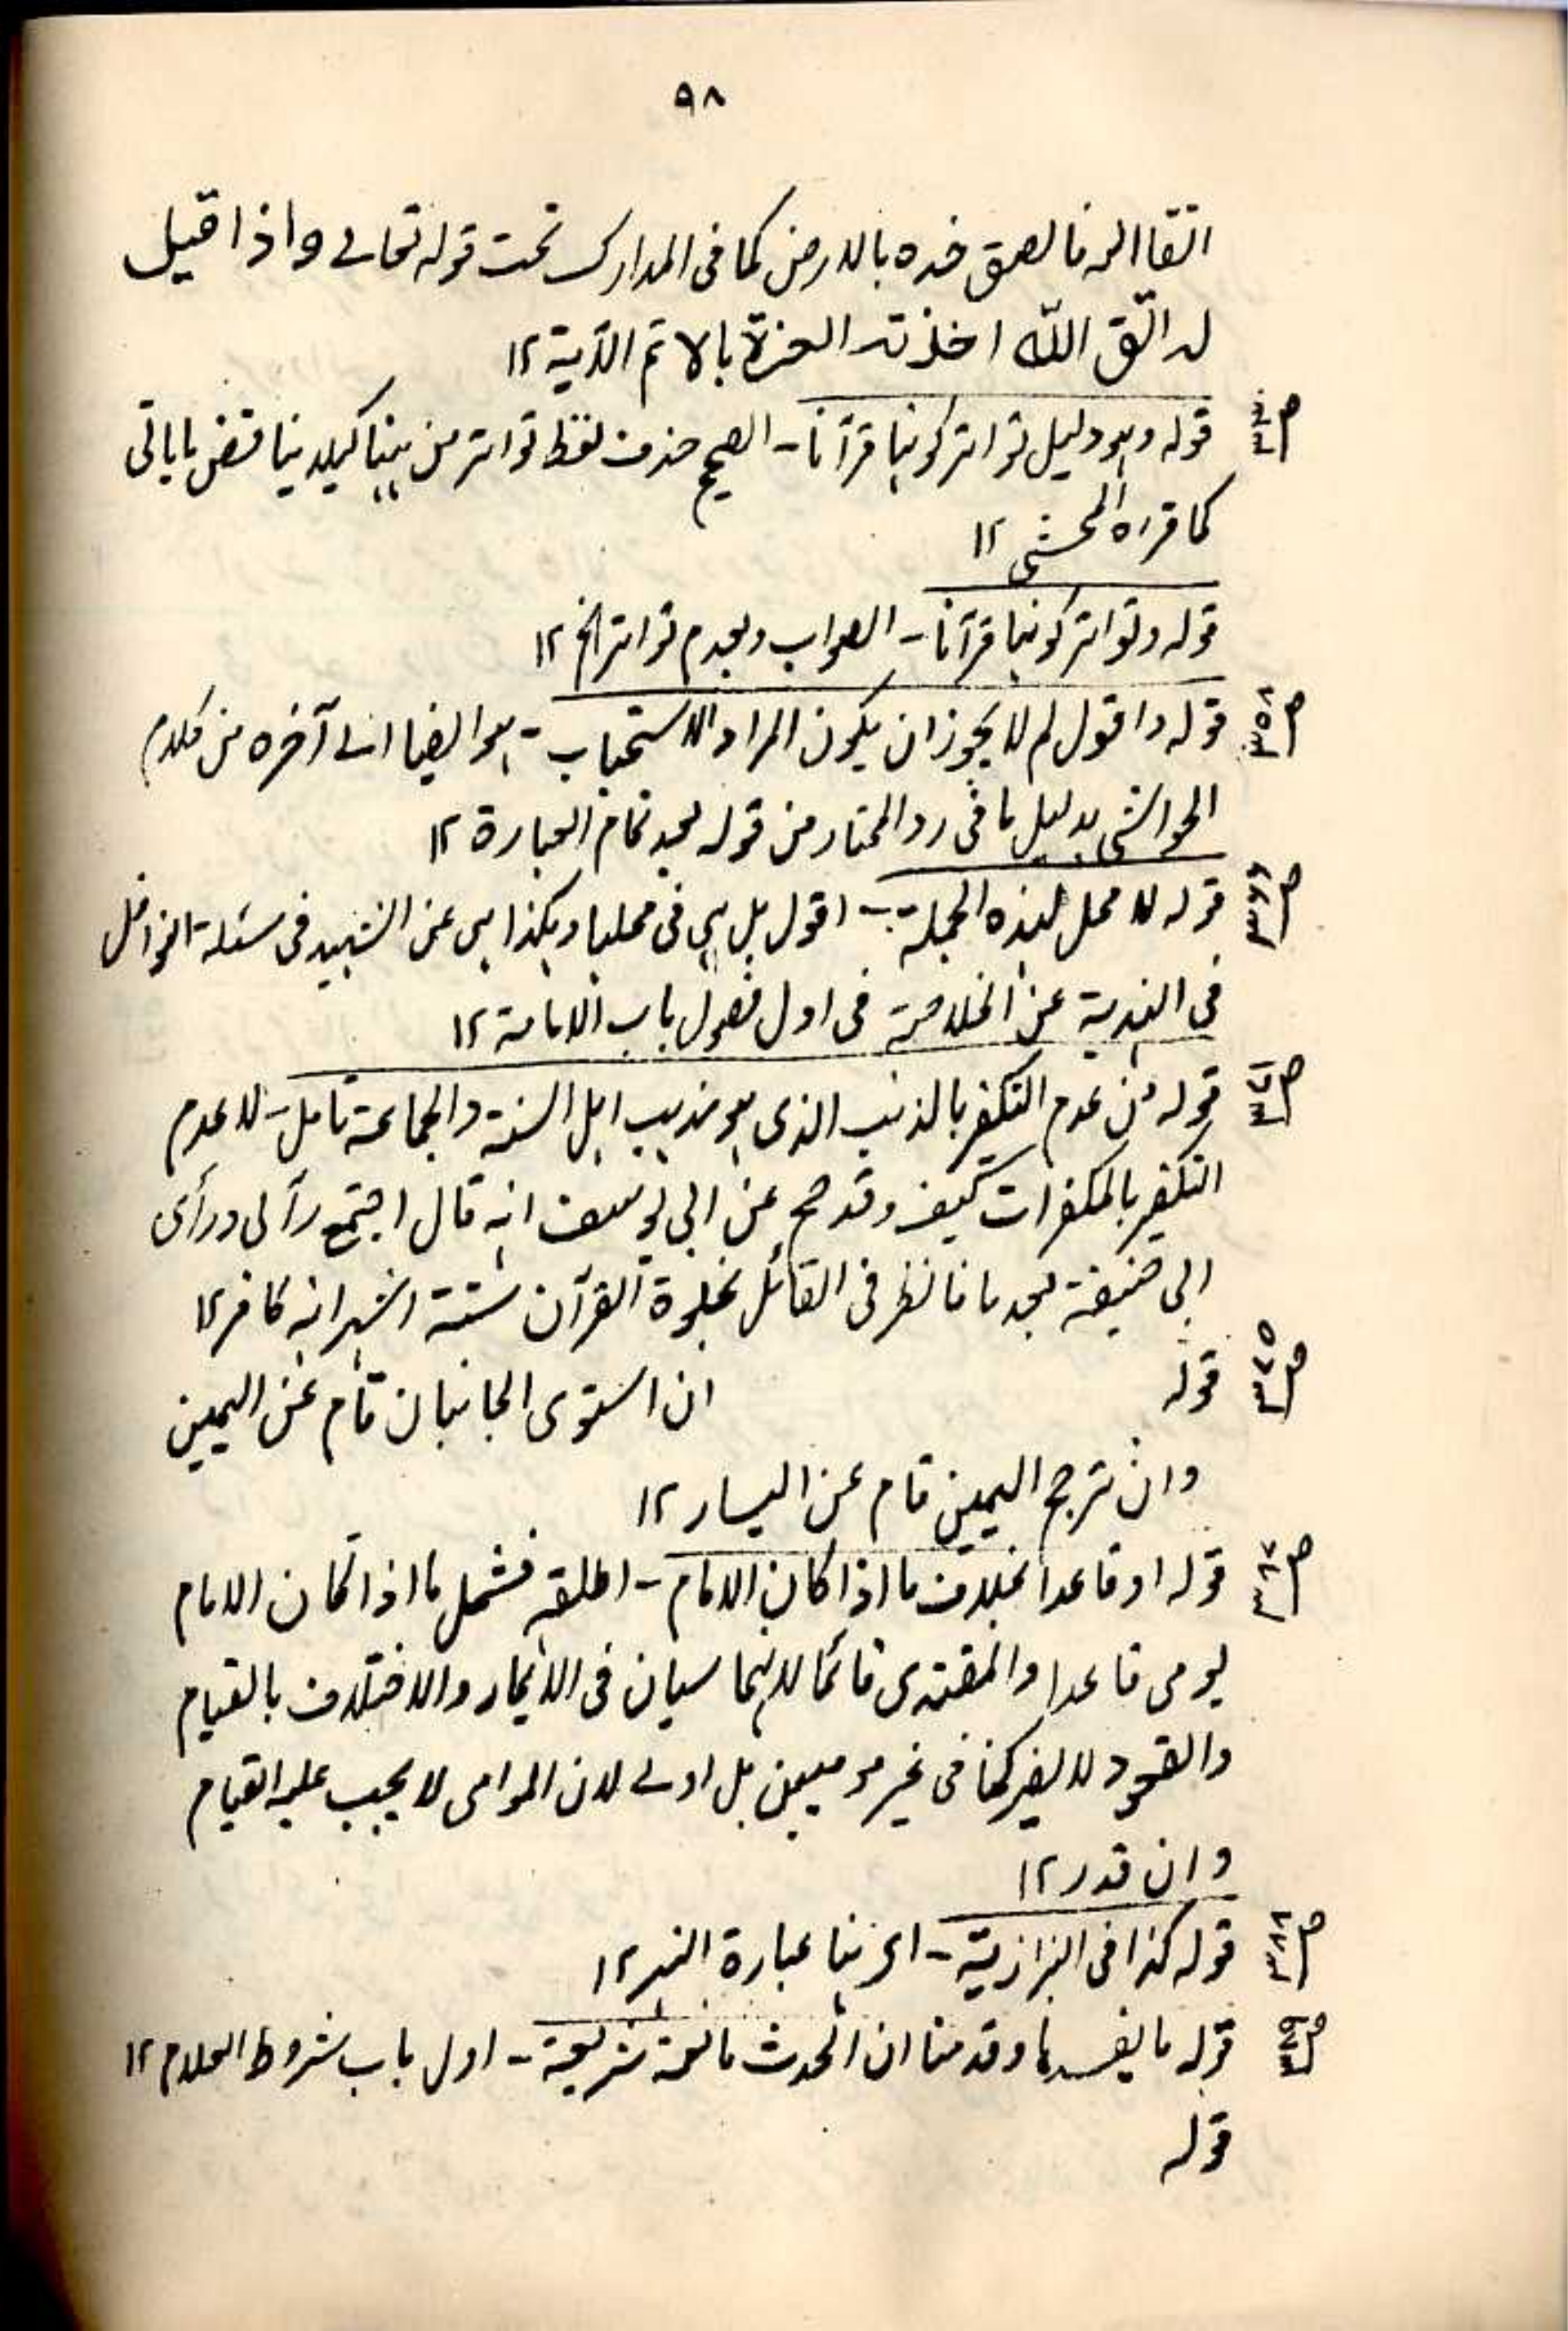 ٩٨
اتقاالله فالصق خده بالارض كما فى المدارك تحت قوله تعالى واذا قيل
له اتّق اللّٰه اخذته العزة بالاثم الآية ١٢
قوله وهو دليل تواتر كونها قرآنا - الصحيح حذف لفظ تواتر من هنا كيلا يناقض ما ياتى
كما قرره المحشى ١٢
قوله وتواتر كونها قرآنا - الصواب وبعدم تواتر الخ ١٢
ص٣٥٨ قوله واقول لم لا يجوز ان يكون المراد الاستحباب - هو ايضا الى آخره من كلام
الحواشى بدليل ما فى رد المحتار من قوله بعد تمام العبارة ١٢
ص٣٦٦ قوله لا محل لهذه الجملة - اقول بل هى فى محلها وهكذا هى عن الشهيد فى مسئلة النوافل
فى الهندية عن الخلاصة فى اول فصول باب الامامة ١٢
قوله من عدم التكفير بالذنب الذى هو مذهب اهل السنة والجماعة تامل - لا عدم
التكفير بالمكفرات كيف وقد صح عن ابى يوسف انه قال اجتمع رأيى ورأى
ابى حنيفة بعد ما ناظر فى القائل بخلق القرآن ستة اشهر انه كافر ١٢
ص٣٧٥ قوله ان استوى الجانبان قام عن اليمين
وان ترجح اليمين قام عن اليسار ١٢
قوله او قاعدا بخلاف ما اذا كان الامام - اطلقه فشمل ما اذا كان الامام
يومى قاعدا والمقتدى قائما لانهما سيان فى الايماء والاختلاف بالقيام
والقعود لا يضر كما فى غير موميين بل اولى لان المومى لا يجب عليه القيام
وان قدر ١٢
ص٣٨٨ قوله كذا فى البزازية - الى هنا عبارة النهر ١٢
قوله ما يفسدها وقدمنا ان الحدث مانعة شرعية - اول باب شروط الصلاة ١٢
قوله